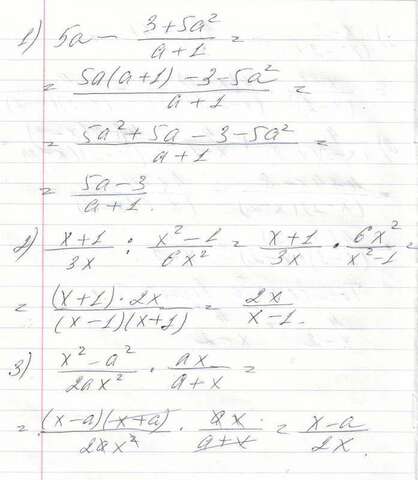 1) 5a - (3+5a²)/(a+1) =
= (5a(a+1) - 3 - 5a²)/(a+1) =
= (5a² + 5a - 3 - 5a²)/(a+1) =
= (5a - 3)/(a+1).
2) (x+1)/(3x) : (x² - 1)/(6x²) = (x+1)/(3x) · (6x²)/(x² - 1) =
= ((x+1) · 2x)/((x-1)(x+1)) = (2x)/(x-1).
3) (x² - a²)/(2ax²) · (ax)/(a+x) =
= ((x-a)(x+a))/(2ax²) · (ax)/(a+x) = (x-a)/(2x).